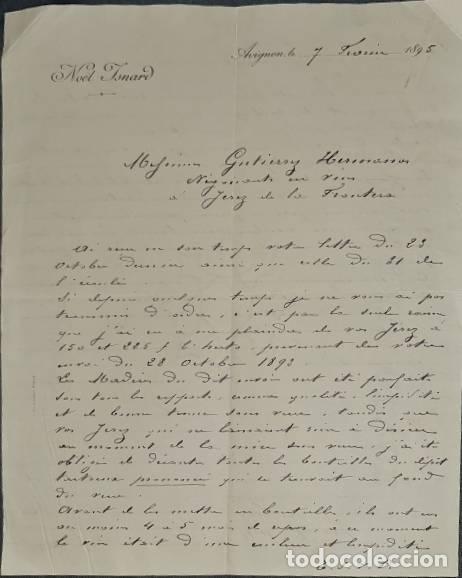 Noël Isnard
Avignon, le 7 Février 1895
Messieurs Gutierrez Hermanos
Négociants en vins
à Jerez de la Frontera
Ai reçu en son temps votre lettre du 23
Octobre dernier ainsi que celle du 31 de
l'écoulé.
Si depuis quelques temps je ne vous ai pas
transmis d'ordres, c'est par la seule cause
que j'ai eu à me plaindre de vos Jerez à
150 et 225 f l'hecto, provenant de votre
envoi du 28 Octobre 1893
Les Madères du dit envoi ont été parfaits
sous tous les rapports, comme qualité, limpidité
et de bonne tenue sous verre, tandis que
vos Jerez qui ne laissaient rien à désirer
au moment de la mise sous verre j'ai été
obligé de décanter toutes les bouteilles du dépôt
tartreux prononcé qui se trouvait au fond
du verre.
Avant de les mettre en bouteilles, ils ont eu
au moins 4 à 5 mois de repos, à ce moment
le vin était d'une couleur et limpidité
todocoleccion